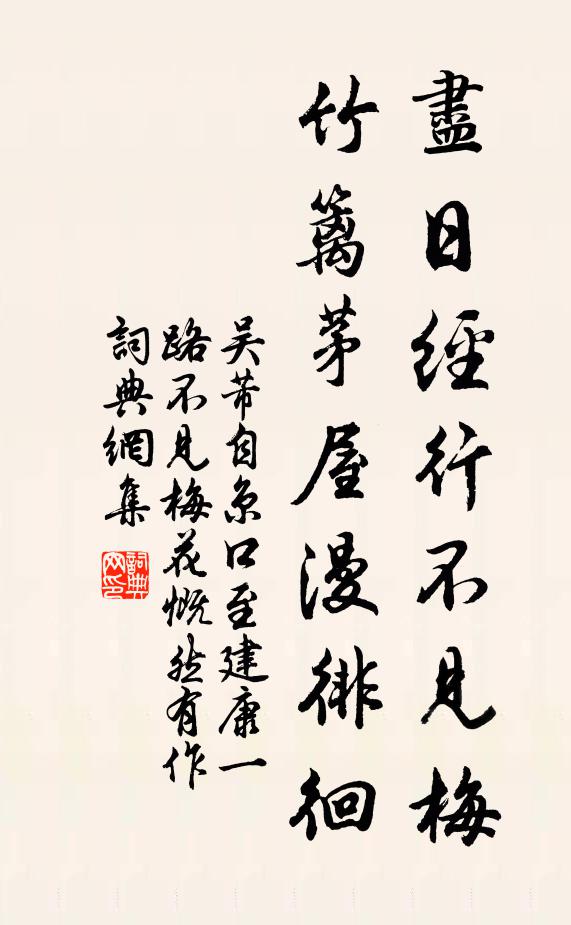 盡日經行不見梅
竹籬茅屋漫徘徊
吴芾自京口至建康一
路不見梅花慨然有作
詞典網集
詞典
网印